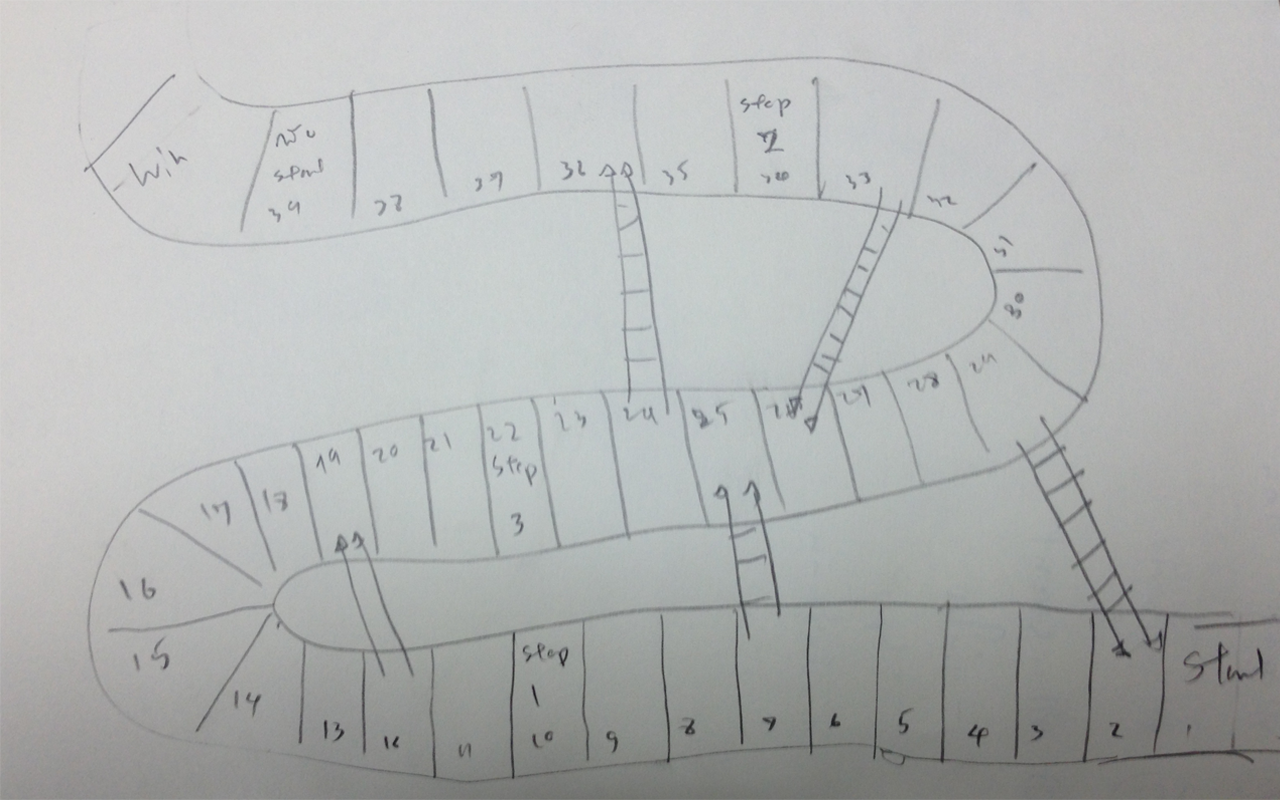 Win
39
38
37
36
35
stop
2
33
32
31
30
29
28
27
25
24
23
22
stop
3
21
20
19
18
17
16
15
14
13
12
11
stop
1
10
9
8
7
6
5
4
3
2
1
Start